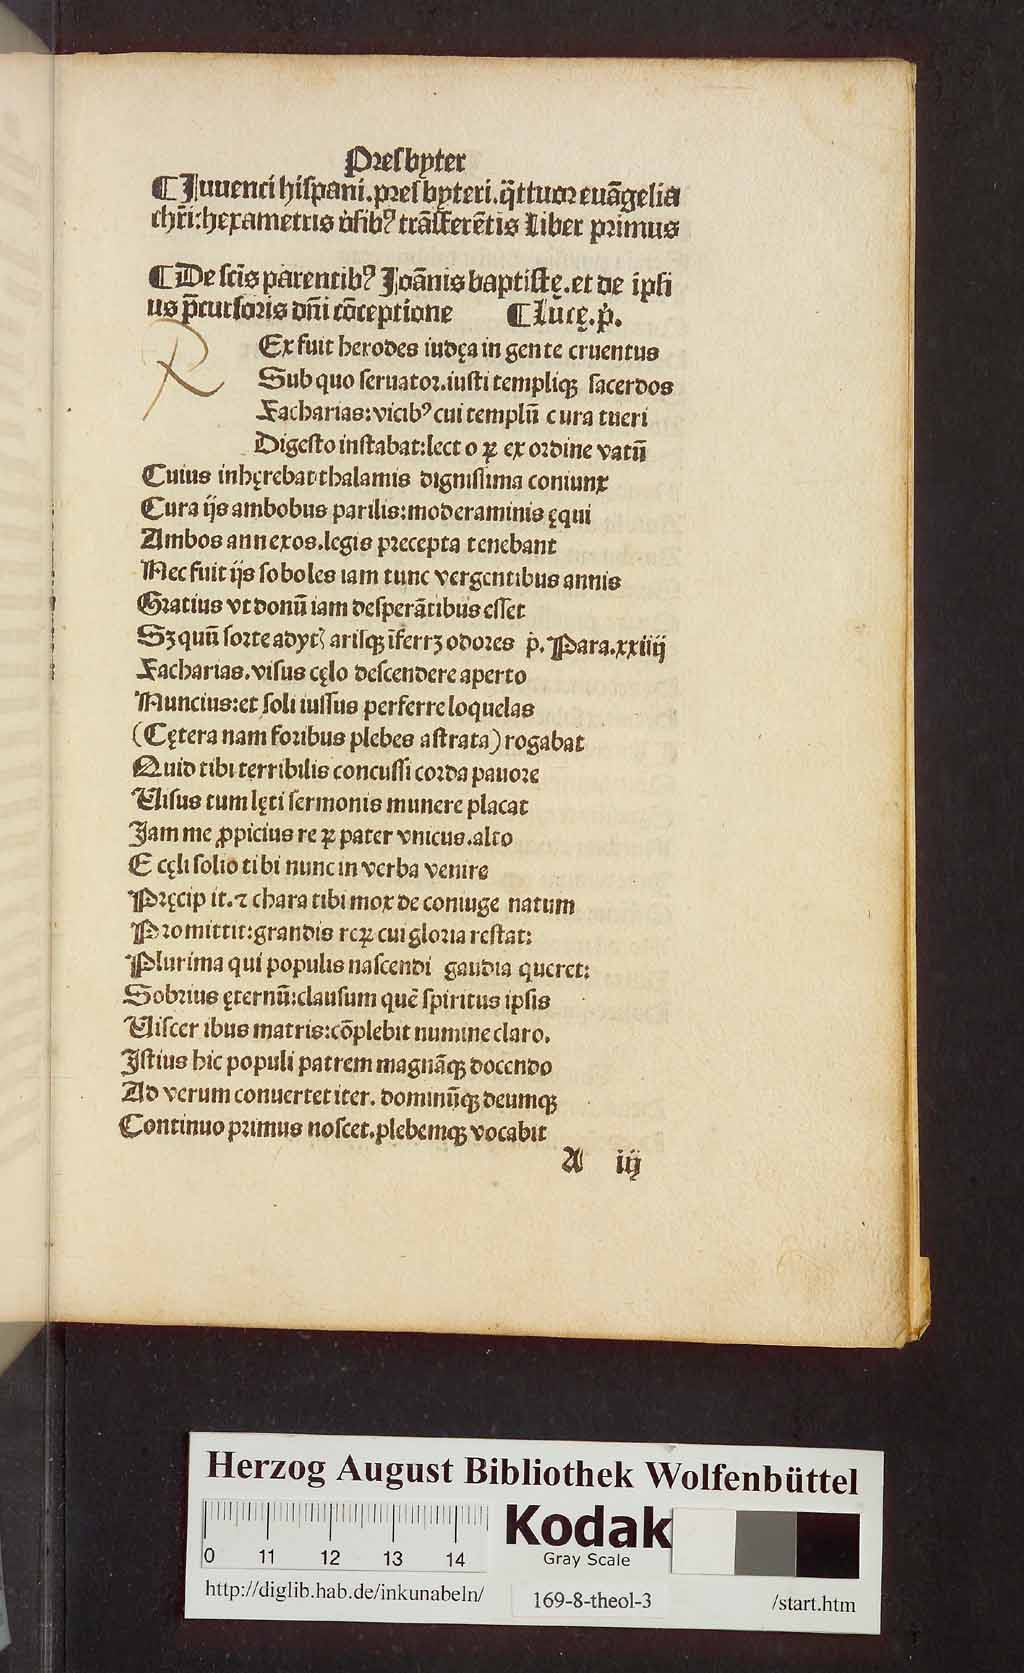 Presbyter
¶Juuenci hispani.presbyteri.q̈ttuor euãgelia
chr̃i:hexametris v̓sib⁹ trãsferẽtis Liber primus
¶De sctĩs parentib⁹ Joãnis baptistę.et de ipsi
us p̃cursoris dñi cõceptione ¶Lucę.p̓.
R Ex fuit herodes iudęa in gente cruentus
Sub quo seruator.iusti templiqꝫ sacerdos
Zacharias:vicib⁹ cui templũ cura tueri
Digesto instabat:lecto ꝝ ex ordine vatũ
Cuius inhęrebat thalamis dignissima coniunx
Cura ijs ambobus parilis:moderaminis ęqui
Ambos annexos.legis precepta tenebant
Nec fuit ijs soboles iam tunc vergentibus annis
Gratius vt donũ iam desperãtibus esset
Sꝫ quũ sorte adytꝭ arisqꝫ ĩferrꝫ odores p̓. Para.xxiiij
Zacharias.visus cęlo descendere aperto
Nuncius:et soli iussus perferre loquelas
(Cętera nam foribus plebes astrata) rogabat
Quid tibi terribilis concussi corda pauore
Visus tum lęti sermonis munere placat
Jam me ꝓpicius re ꝝ pater vnicus.alto
E cęli solio tibi nunc in verba venire
Pręcip it.⁊ chara tibi mox de coniuge natum
Promittit:grandis reꝝ cui gloria restat:
Plurima qui populis nascendi gaudia queret:
Sobrius ęternũ:clausum quẽ spiritus ipsis
Viscer ibus matris:cõplebit numine claro.
Istius hic populi patrem magnãqꝫ docendo
Ad verum conuertet iter. dominũqꝫ deumqꝫ
Continuo primus noscet.plebemqꝫ vocabit
A iij
Herzog August Bibliothek Wolfenbüttel
0 11 12 13 14
Kodak
Gray Scale
http://diglib.hab.de/inkunabeln/ 169-8-theol-3 /start.htm